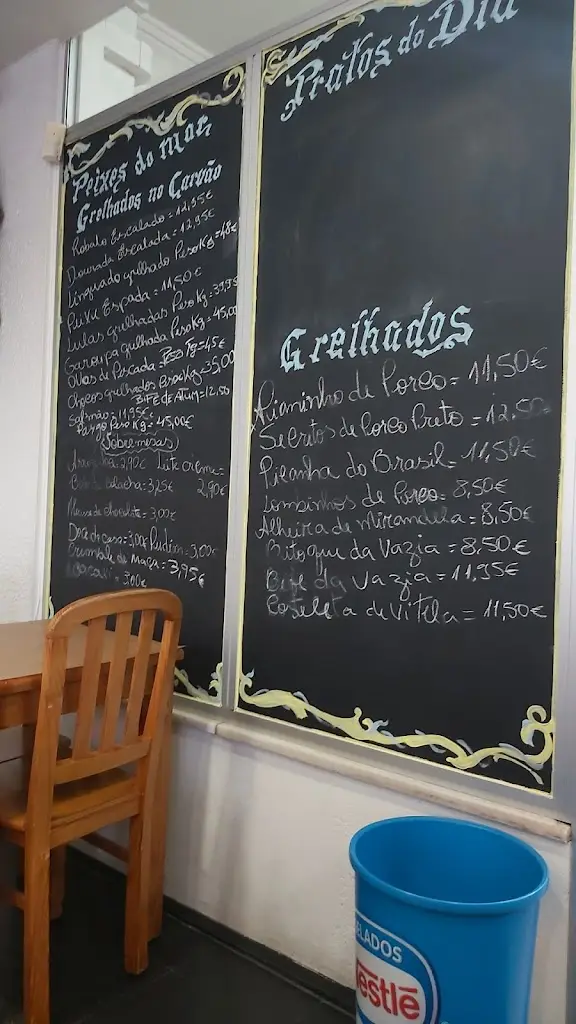 Peixes do mar
Grelhados no Carvão
Robalo Escalado = 12,95€
Dourada Escalada = 12,95€
Linguado grelhado Peso Kg = 48€
Peixe Espada = 11,50€
Lulas grelhadas Peso Kg = 39,95
Garoupa grelhada Peso Kg = 45,00
Ovas de Pescada Peso Kg = 45€
Chocos grelhados Peso Kg = 35,00
Salmão = 11,95€ BIFE de ATUM = 12,50
Pargo Peso Kg = 45,00€
(Sobremesas)
2,90€ Leite creme
3,25€ 2,90€
Musse de chocolate = 3,00€
Doce da casa = 3,00€ Pudim = 3,00€
Crumble de Maçã = 3,95€
= 3,00€
Pratos do Dia
Grelhados
Pianinho de Porco = 11,50€
Secretos de Porco Preto = 12,50
Picanha do Brasil = 11,50€
Lombinhos de Porco = 8,50€
Alheira de Mirandela = 8,50€
Bitoque da Vazia = 8,50€
Bife da Vazia = 11,95€
Costeleta de Vitela = 11,50€
ELADOS
estlé